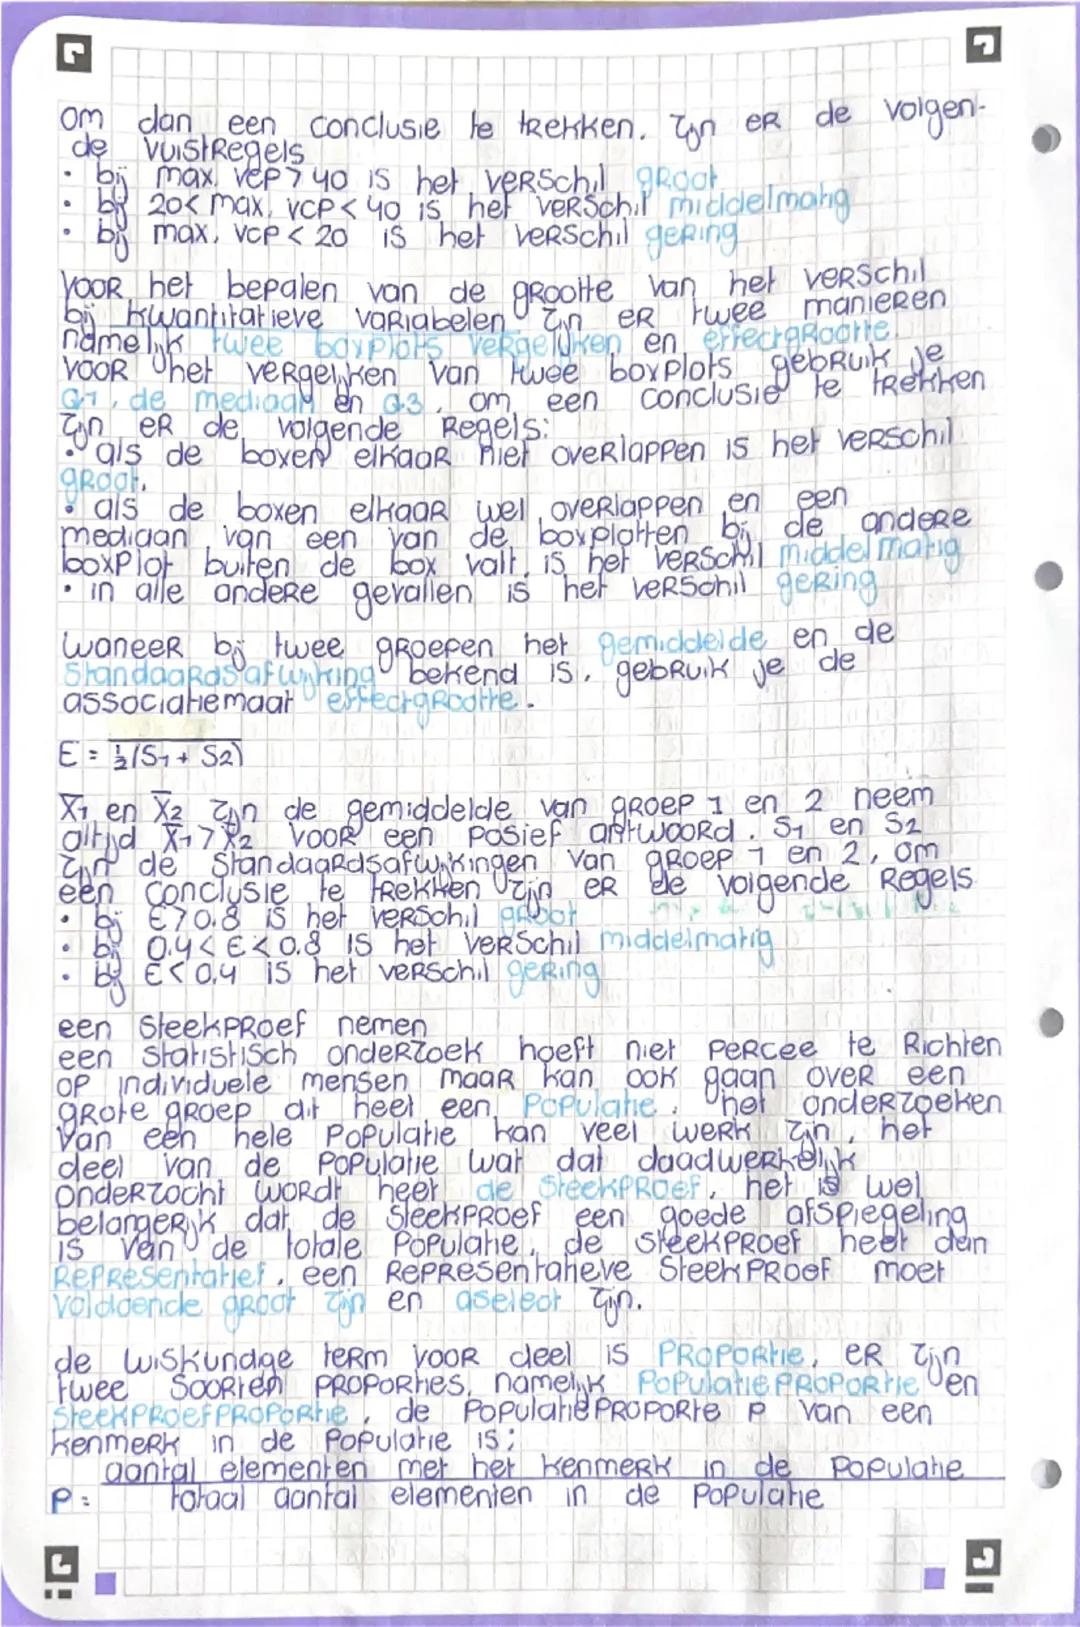 om dan een conclusie te trekken. zijn er de volgen-
de vuistregels
• bij max. vcp > 40 is het verschil groot
• bij 20 < max. vcp < 40 is het verschil middelmatig
• bij max. vcp < 20 is het verschil gering
voor het bepalen van de grootte van het verschil
bij kwantitatieve variabelen zijn er twee manieren
namelijk twee boxplots vergelijken en effectgrootte.
voor het vergelijken van twee boxplots gebruik je
Q1, de mediaan en Q3, om een conclusie te trekken
zijn er de volgende regels:
• als de boxen elkaar niet overlappen is het verschil
groot.
• als de boxen elkaar wel overlappen en een
mediaan van een van de boxplotten bij de andere
boxplot buiten de box valt, is het verschil middelmatig
• in alle andere gevallen is het verschil gering
waneer bij twee groepen het gemiddelde en de
standaardsafwijking bekend is, gebruik je de
associatiemaat effectgrootte.
E = ½(S1 + S2)
X̄1 en X̄2 zijn de gemiddelde van groep 1 en 2 neem
altijd X̄1 > X̄2 voor een posief antwoord. S1 en S2
zijn de standaardsafwijkingen van groep 1 en 2, om
een conclusie te trekken zijn er de volgende regels
• bij E > 0.8 is het verschil groot
• bij 0.4 < E < 0.8 is het verschil middelmatig
• bij E < 0,4 is het verschil gering
een steekproef nemen
een statistisch onderzoek hoeft niet percee te richten
op individuele mensen maar kan ook gaan over een
grote groep dit heet een populatie. het onderzoeken
van een hele populatie kan veel werk zijn, het
deel van de populatie wat dat daadwerkelijk
onderzocht wordt heet de steekproef, het is wel
belangerijk dat de steekproef een goede afspiegeling
is van de totale populatie, de steekproef heet dan
representatief, een representatieve steekproef moet
voldoende groot zijn en aselect zijn.
de wiskundge term voor deel is proportie, er zijn
twee soorten proporties, namelijk populatieproportie en
steekproefproportie, de populatieproporte p van een
kenmerk in de populatie is;
aantal elementen met het kenmerk in de populatie
p = totaal aantal elementen in de populatie